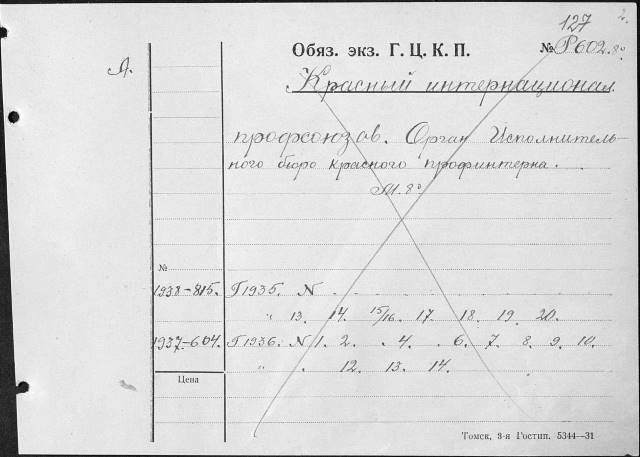 2.
127
Обяз. экз. Г. Ц. К. П. № Р602. 8º
А.
Красный интернационал
профсоюзов. Орган Исполнитель-
ного бюро красного профинтерна.
М. 8º
№
1938-815. Г 1935. N
" 13. 14. 15/16. 17. 18. 19. 20.
1937-604. Г 1936. N 1. 2. . 4. . 6. 7. 8. 9. 10.
" . 12. 13. 14.
Цена
Томск, 3-я Гостип. 5344—31